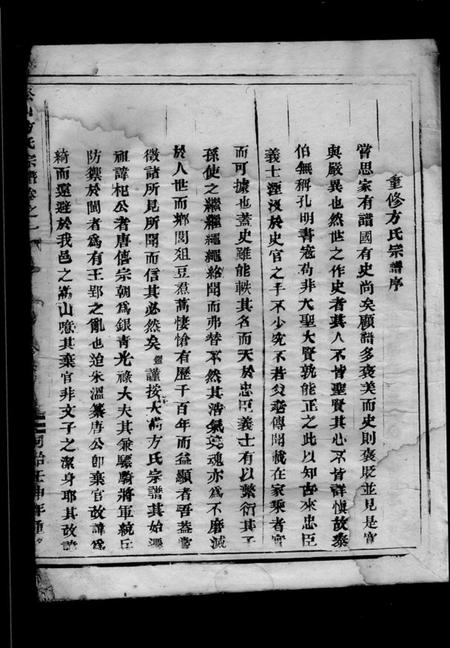 重修方氏宗譜序
嘗思家有譜國有史尚矣顧譜多褒美而史則褒貶並見是宜
與嚴異也然世之作史者其人不皆聖賢其心不皆詳慎故黍
伯無稱孔明書寇苟非大聖大賢孰能正之此以知古來忠臣
義士湮沒於史官之手不少究不若父老傳聞載在家乘者實
而可據也蓋史雖能軼其名而天於忠臣義士有以繁衍其子
孫使之繼繼繩繩紛聞而弗替不然其浩氣英魂亦為不磨滅
於人世而鄉閭俎豆焄蒿悽愴有歷千百年而益顯者吾蓋嘗
徵諸所見所聞而信其必然矣 謹按大嵩方氏宗譜其始遷
祖諱相公者唐僖宗朝為銀青光祿大夫其兼驃騎將軍統兵
防禦於閩者為有王郢之亂也迨朱溫篡唐公即棄官改諱為
綺而遠避於我邑之嵩山噫其棄官非文子之潔身耶其改諱
方氏宗譜卷之一
同治壬申年重